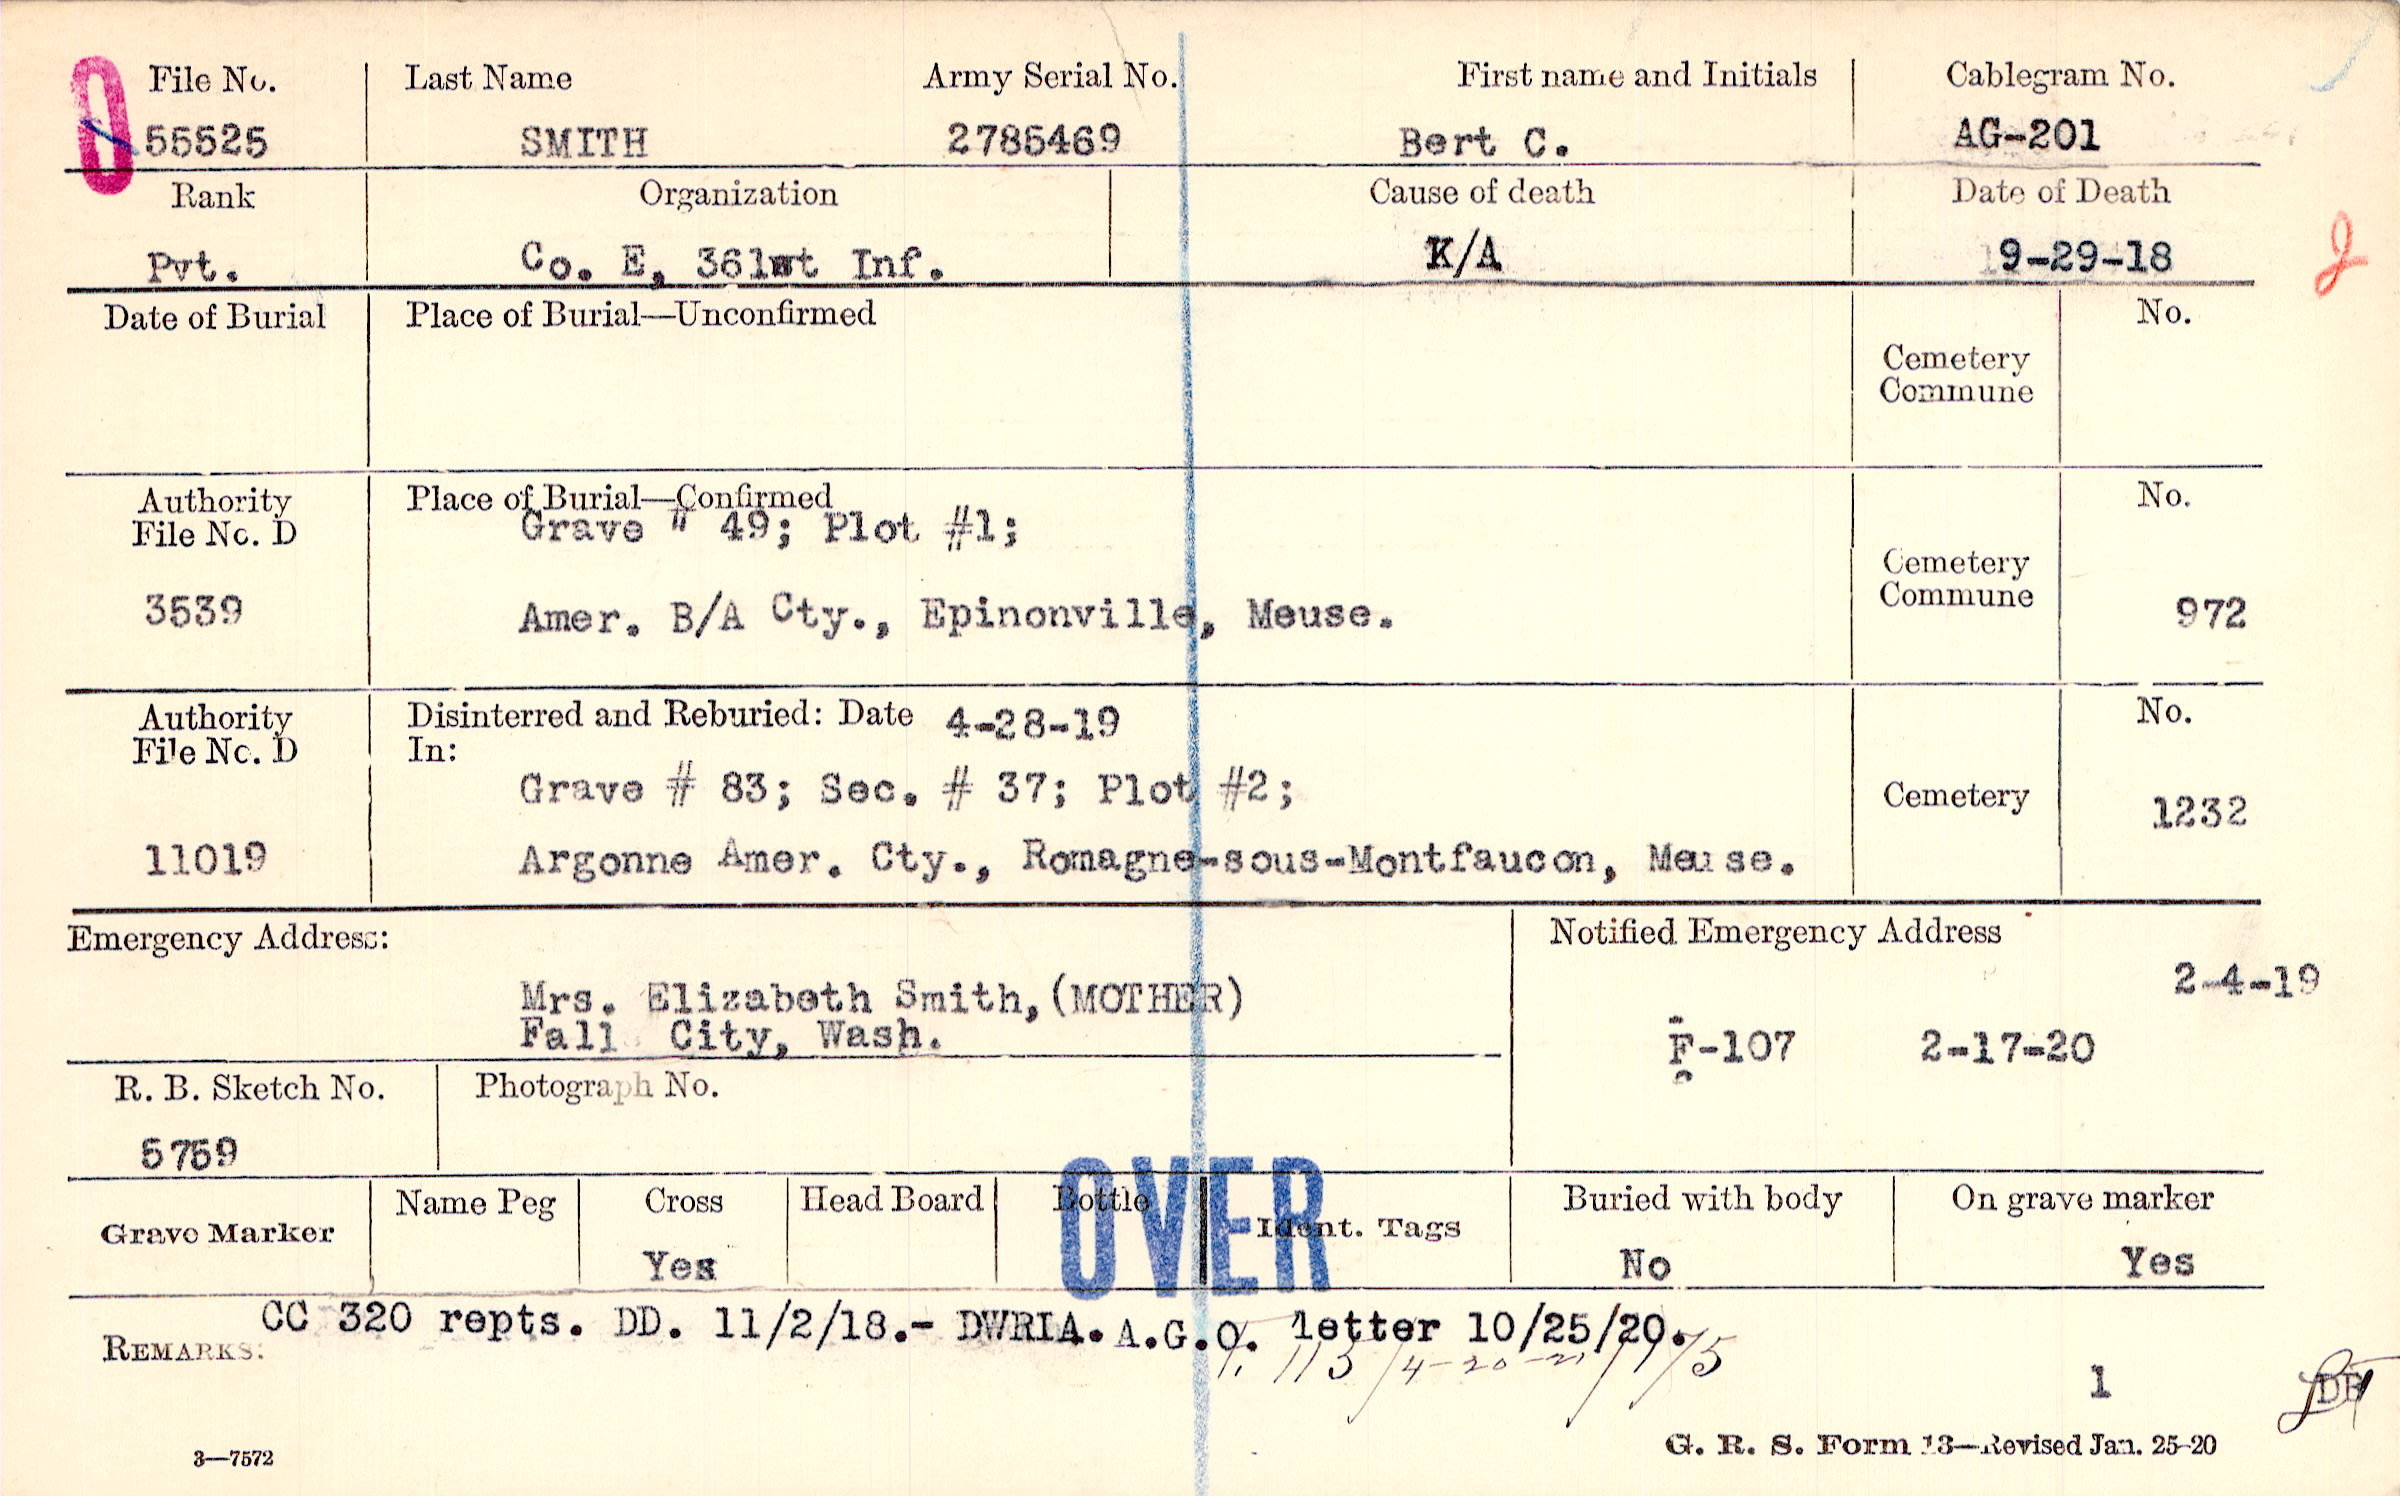 File No. Last Name Army Serial No. First name and Initials Cablegram No.
55525 SMITH 2785469 Bert C. AG-201
Rank Organization Cause of death Date of Death
Pvt. Co. E, 361st Inf. K/A 9-29-18
Date of Burial Place of Burial—Unconfirmed No.
Cemetery
Commune
Authority Place of Burial—Confirmed No.
File No. D Grave # 49; Plot #1;
Cemetery
Commune
3539 Amer. B/A Cty., Epinonville, Meuse. 972
Authority Disinterred and Reburied: Date 4-28-19 No.
File No. D In:
Grave # 83; Sec. # 37; Plot #2; Cemetery 1232
11019 Argonne Amer. Cty., Romagne-sous-Montfaucon, Meuse.
Emergency Address: Notified Emergency Address
2-4-19
Mrs. Elizabeth Smith, (MOTHER)
Fall City, Wash. F-107 2-17-20
R. B. Sketch No. Photograph No.
5759
OVER
Name Peg Cross Head Board Bottle Buried with body On grave marker
Grave Marker Ident. Tags
Yes No Yes
CC 320 repts. DD. 11/2/18.- DWRIA. A.G.O. letter 10/25/20.
REMARKS: 113 4-20-21
1
3—7572 G. R. S. Form 13—Revised Jan. 25-20